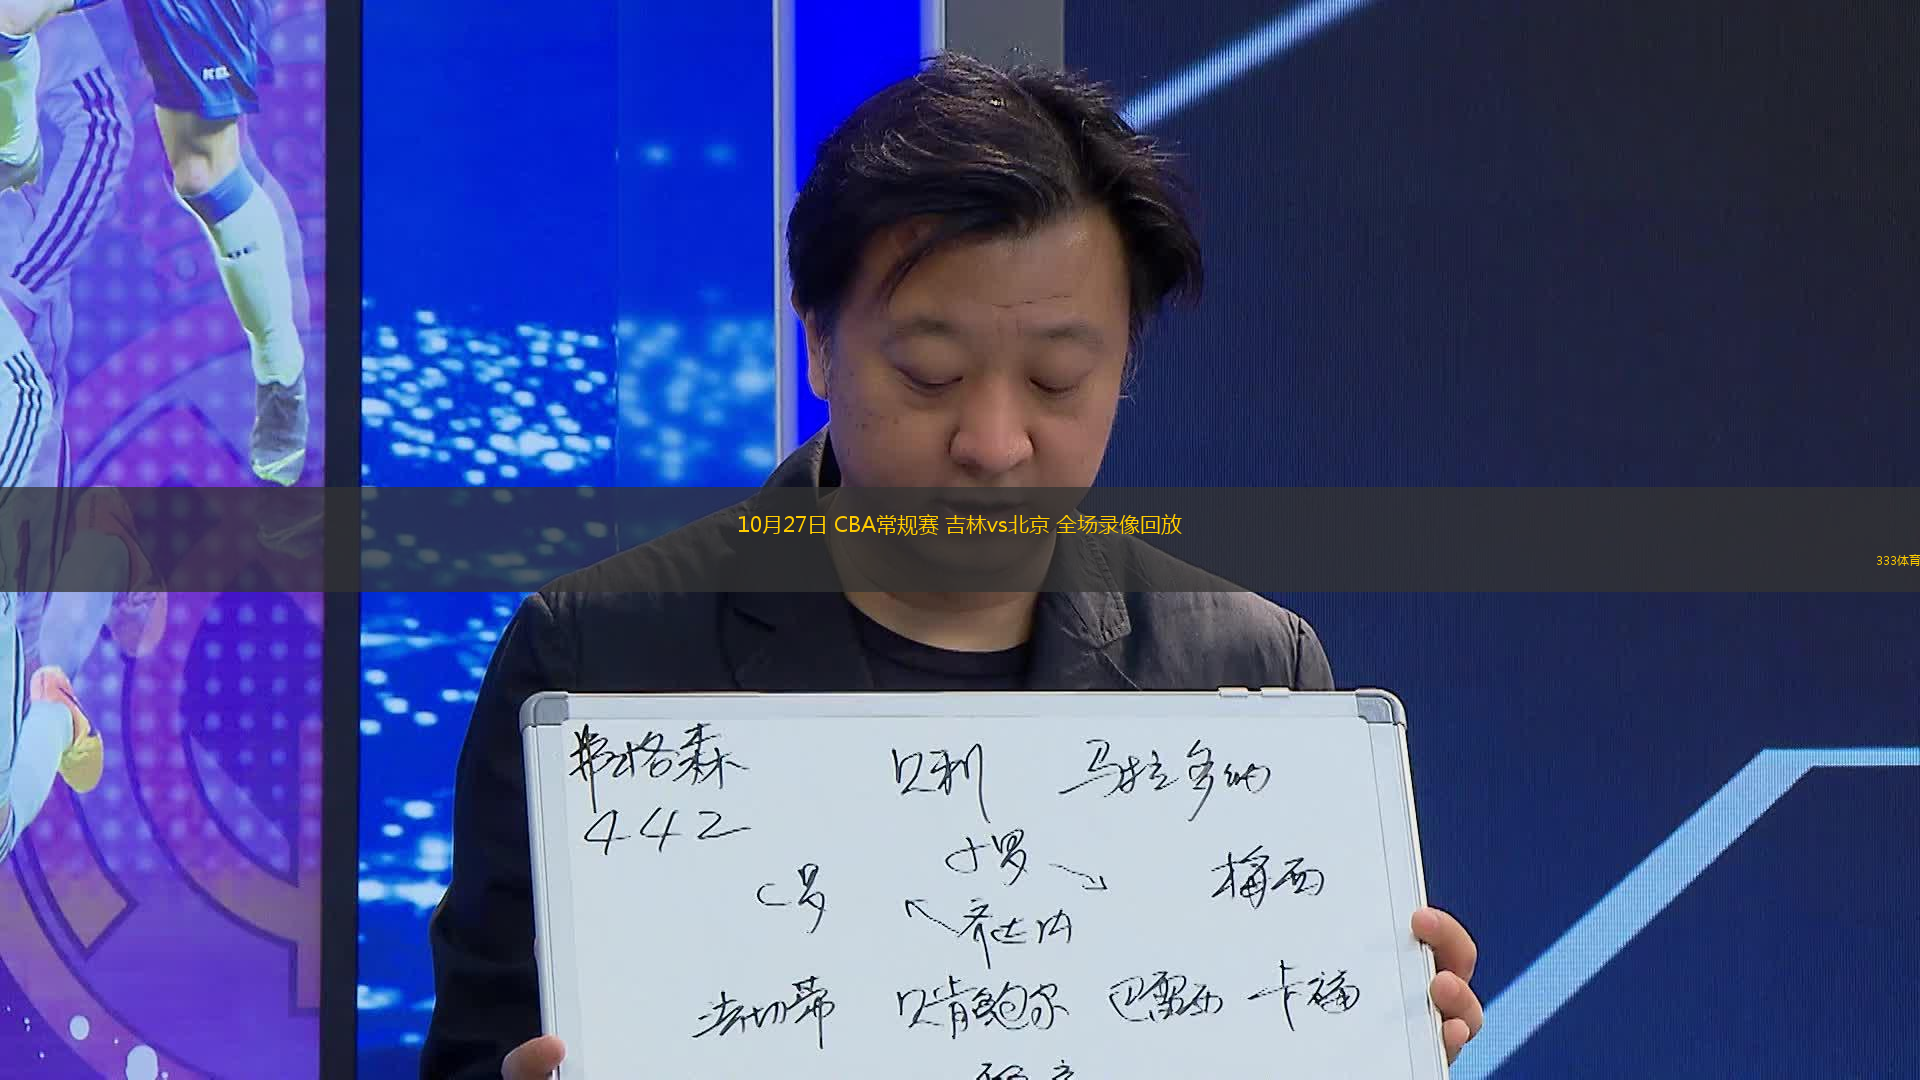 10月27日 CBA常规赛 吉林vs北京 全场录像回放
333体育
弗格森 贝利 马拉多纳
442
小罗
C罗 梅西
齐达内
法切蒂 贝肯鲍尔 巴雷西 卡福